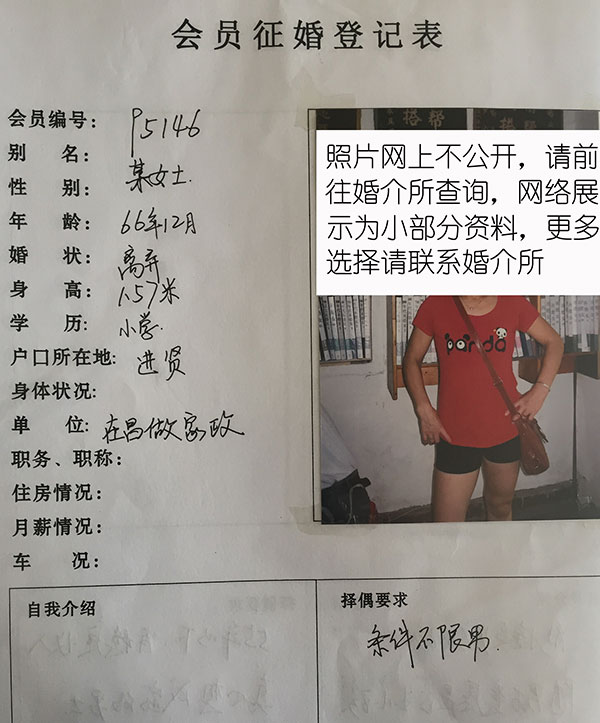 会员征婚登记表
会员编号: 95146
别 名:
性 别: 某女士.
年 龄: 66年12月
婚 状: 离异
身 高: 1.57米
学 历: 小学.
户口所在地: 进贤
身体状况:
单 位: 在昌做家政
职务、职称:
住房情况:
月薪情况:
车 况:
照片网上不公开，请前
往婚介所查询，网络展
示为小部分资料，更多
选择请联系婚介所
panda
自我介绍
择偶要求
条件不限男.